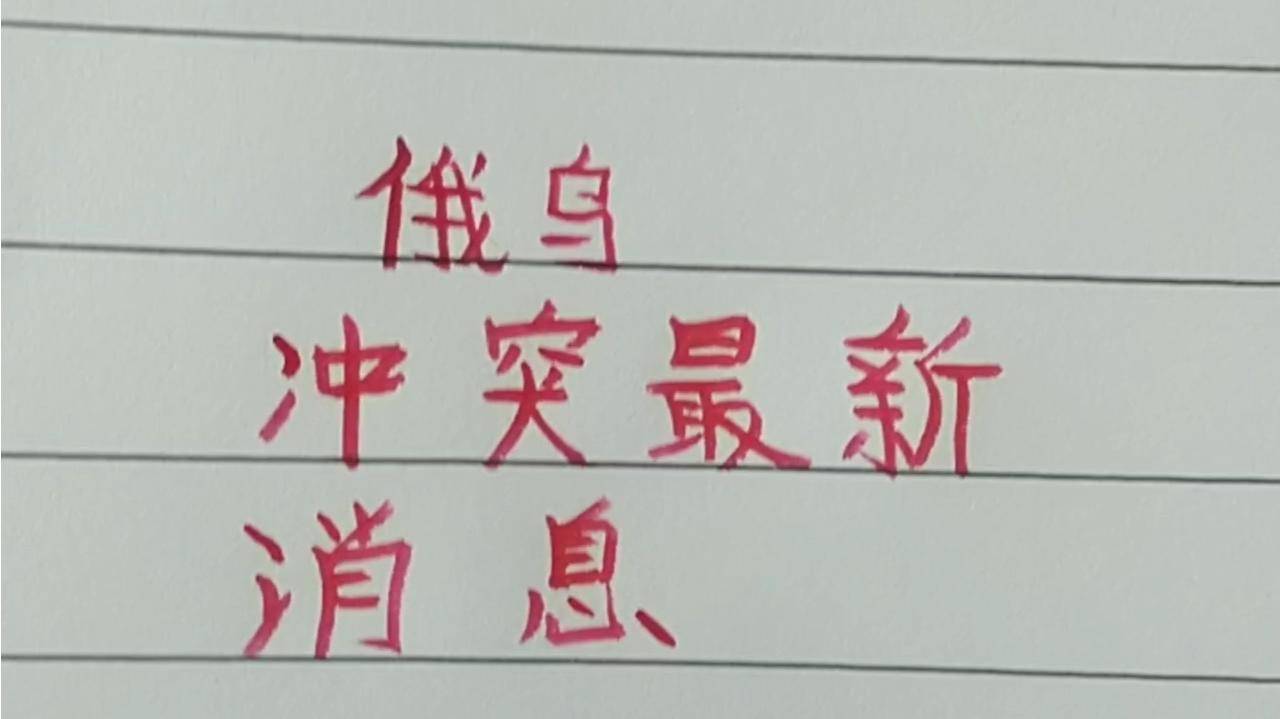 俄乌
冲突最新
消息